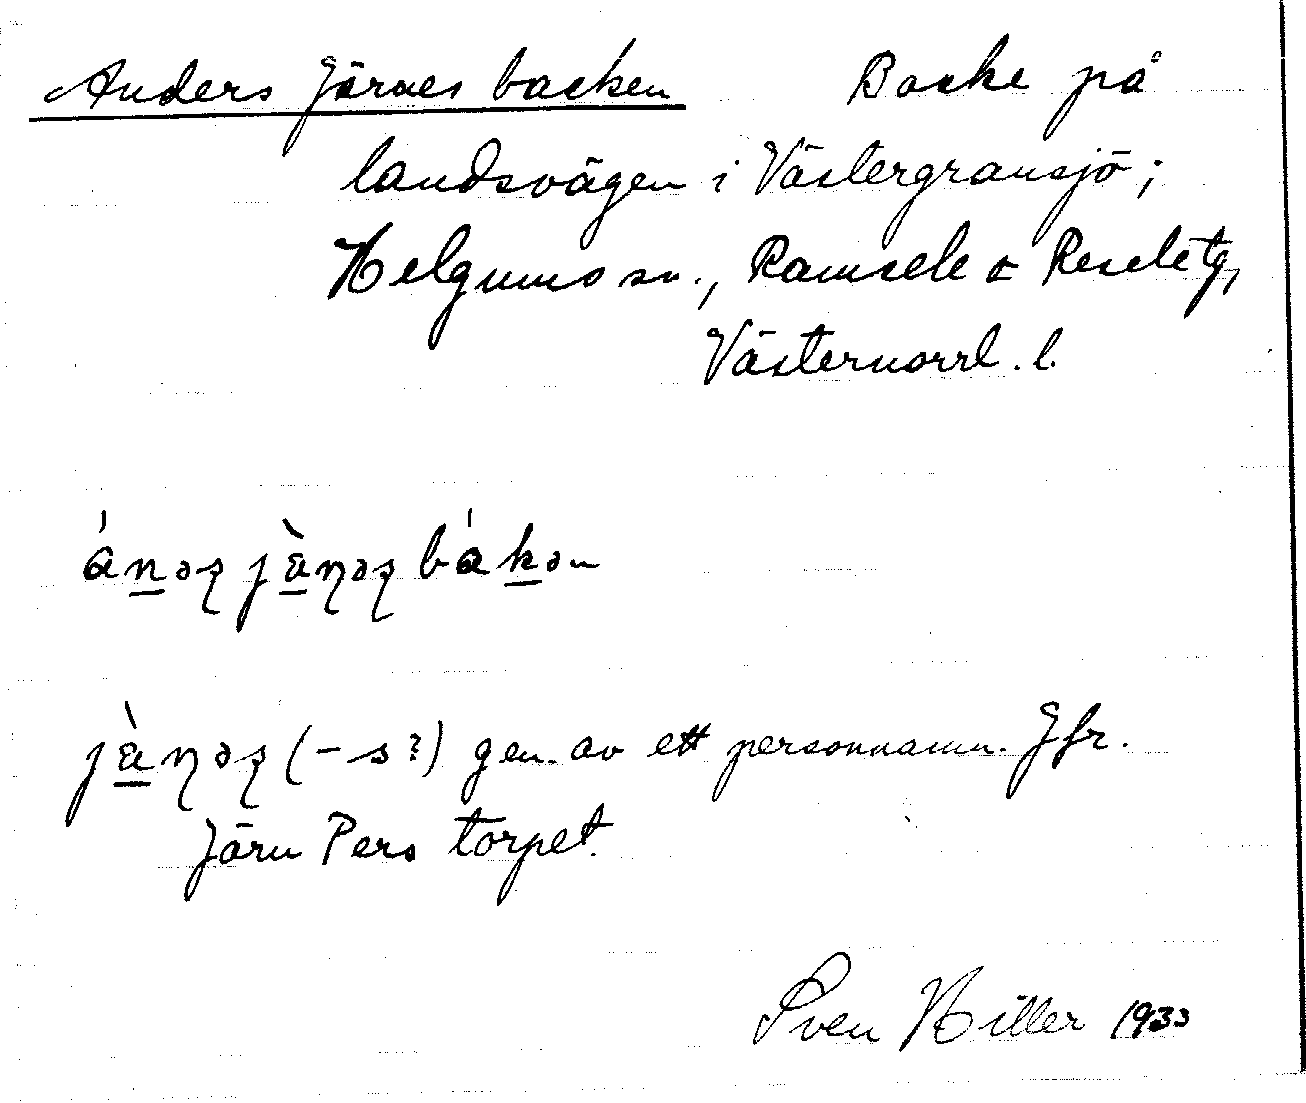 Anders Järnes backen Backe på
landsvägen i Västergransjö;
Helgums sn., Ramsele o Resele tg,
Västernorrl. l.
ánəʂ jὰɳəʂ bákən
jὰɳəʂ (-s?) gen. av ett personnamn. Jfr.
Järn Pers torpet.
Sven Hiller 1933